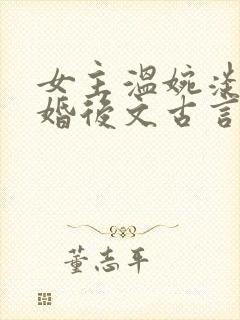 女主温婉淡
婚後文古言
董志平